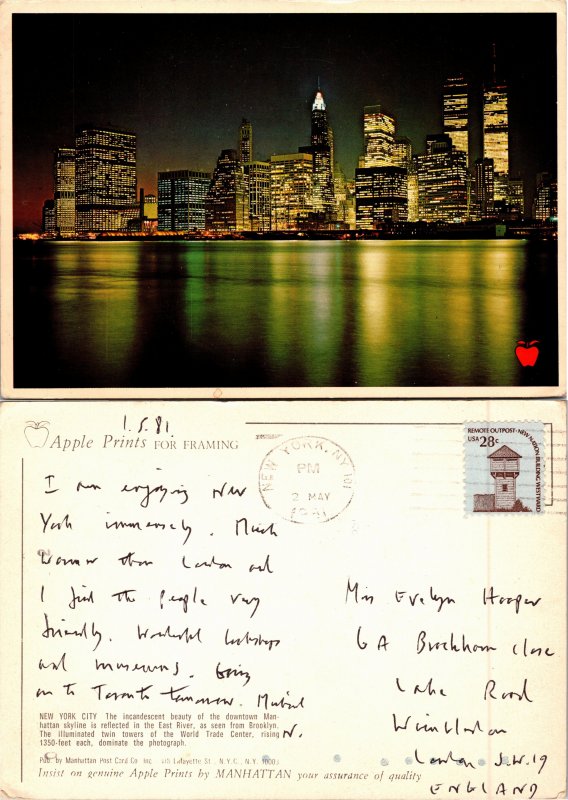 1.5.81.
Apple Prints FOR FRAMING
NEW YORK, N.Y. 101
PM
2 MAY
1981
REMOTE OUTPOST · NEW NATION BUILDING WESTWARD
USA 28c
I am enjoying New
York immensely. Much
warmer than London and
I find the people very
friendly. Wonderful bookshops
and museums. Going
on to Toronto tomorrow. Michael
N.
Miss Evelyn Hooper
6A Brockham Close
Lake Road
Wimbledon
London S.W.19
ENGLAND
NEW YORK CITY The incandescent beauty of the downtown Man-
hattan skyline is reflected in the East River, as seen from Brooklyn.
The illuminated twin towers of the World Trade Center, rising
1350-feet each, dominate the photograph.
Pub. by Manhattan Post Card Co. Inc. Lafayette St. N.Y.C., N.Y. 10003
Insist on genuine Apple Prints by MANHATTAN your assurance of quality